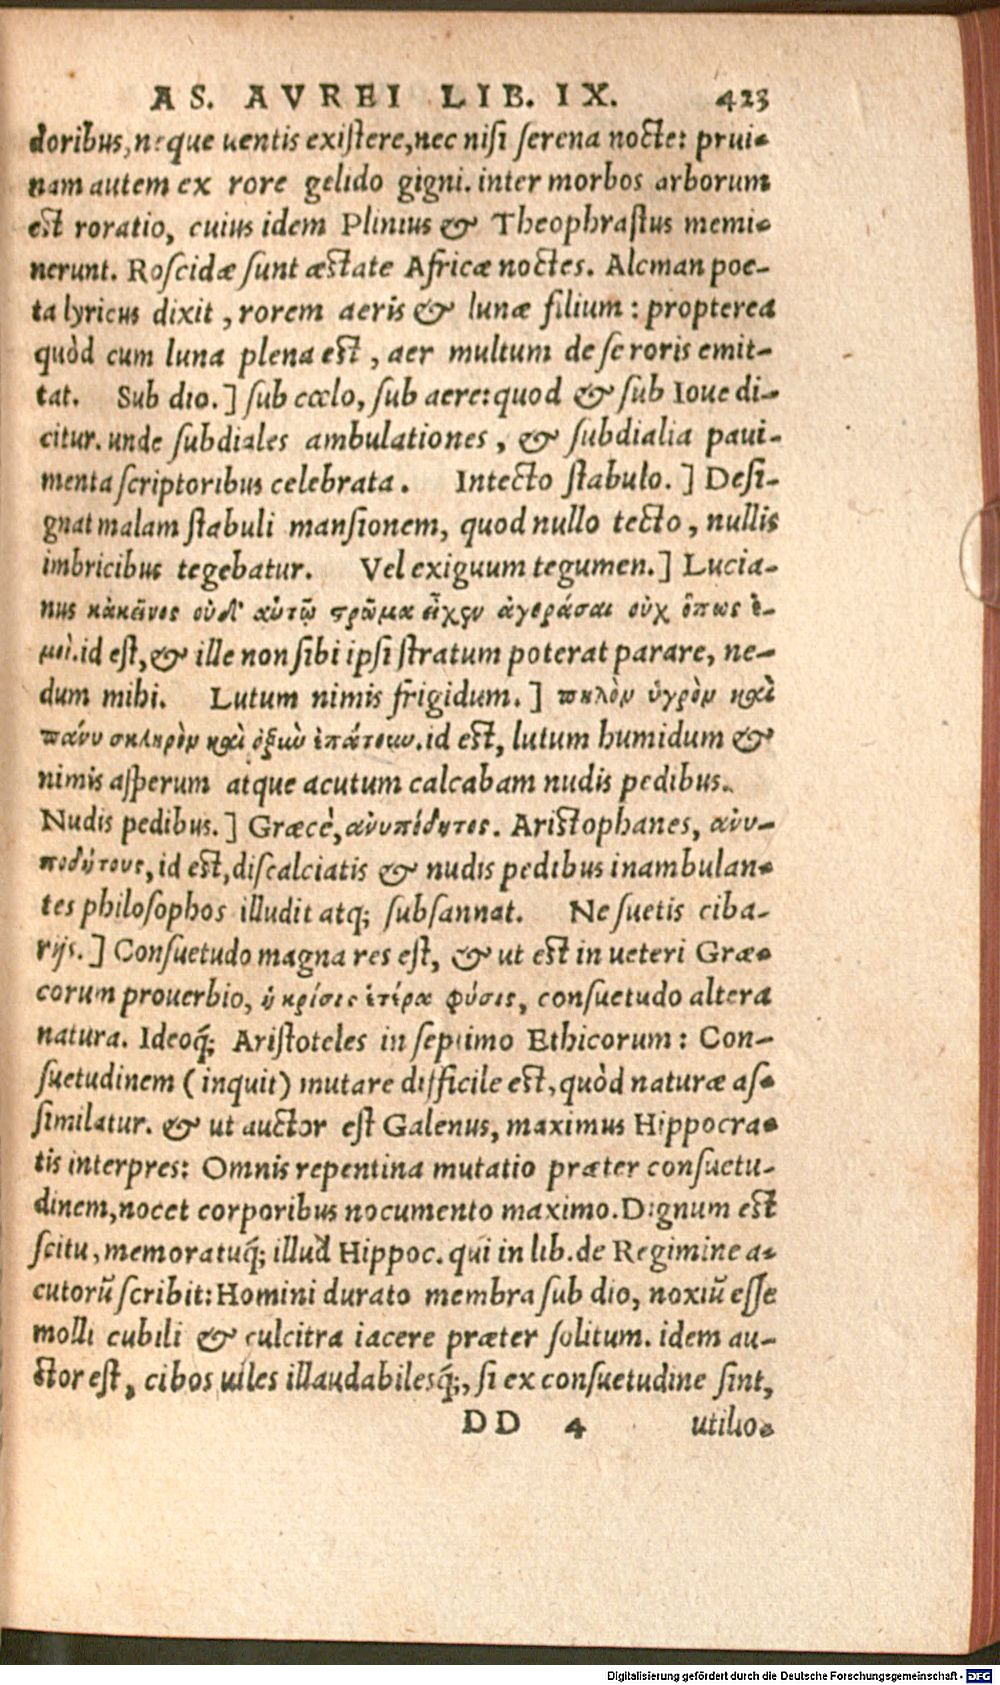 AS. AVREI LIB. IX. 423
doribus, neque uentis existere, nec nisi serena nocte: prui-
nam autem ex rore gelido gigni. inter morbos arborum
est roratio, cuius idem Plinius & Theophrastus memi-
nerunt. Roscidæ sunt æstate Africæ noctes. Alcman poe-
ta lyricus dixit, rorem aeris & lunæ filium: propterea
quòd cum luna plena est, aer multum de se roris emit-
tat. Sub dio.] sub cœlo, sub aere: quod & sub Ioue di-
citur. unde subdiales ambulationes, & subdialia paui-
menta scriptoribus celebrata. Intecto stabulo.] Desi-
gnat malam stabuli mansionem, quod nullo tecto, nullis
imbricibus tegebatur. Vel exiguum tegumen.] Lucia-
nus κἀκεῖνος οὐδ' αὑτῷ στρῶμα εἶχεν ἀγοράσαι οὐχ ὅπως ἐ-
μοὶ. id est, & ille non sibi ipsi stratum poterat parare, ne-
dum mihi. Lutum nimis frigidum.] πηλὸν ὑγρὸν καὶ
πάνυ σκληρὸν καὶ ὀξὺν ἐπάτουν. id est, lutum humidum &
nimis asperum atque acutum calcabam nudis pedibus.
Nudis pedibus.] Græcè, ἀνυπόδητος. Aristophanes, ἀνυ-
ποδήτους, id est, discalciatis & nudis pedibus inambulan-
tes philosophos illudit atq; subsannat. Ne suetis ciba-
rijs.] Consuetudo magna res est, & ut est in ueteri Græ-
corum prouerbio, ἡ κρίσις ἑτέρα φύσις, consuetudo altera
natura. Ideoq́; Aristoteles in septimo Ethicorum: Con-
suetudinem (inquit) mutare difficile est, quòd naturæ as-
similatur. & ut auctor est Galenus, maximus Hippocra-
tis interpres: Omnis repentina mutatio præter consuetu-
dinem, nocet corporibus nocumento maximo. Dignum est
scitu, memoratuq́; illud Hippoc. qui in lib. de Regimine a-
cutorũ scribit: Homini durato membra sub dio, noxiũ esse
molli cubili & culcitra iacere præter solitum. idem au-
ctor est, cibos uiles illaudabilesq́;, si ex consuetudine sint,
DD 4 utilio-
Digitalisierung gefördert durch die Deutsche Forschungsgemeinschaft - DFG